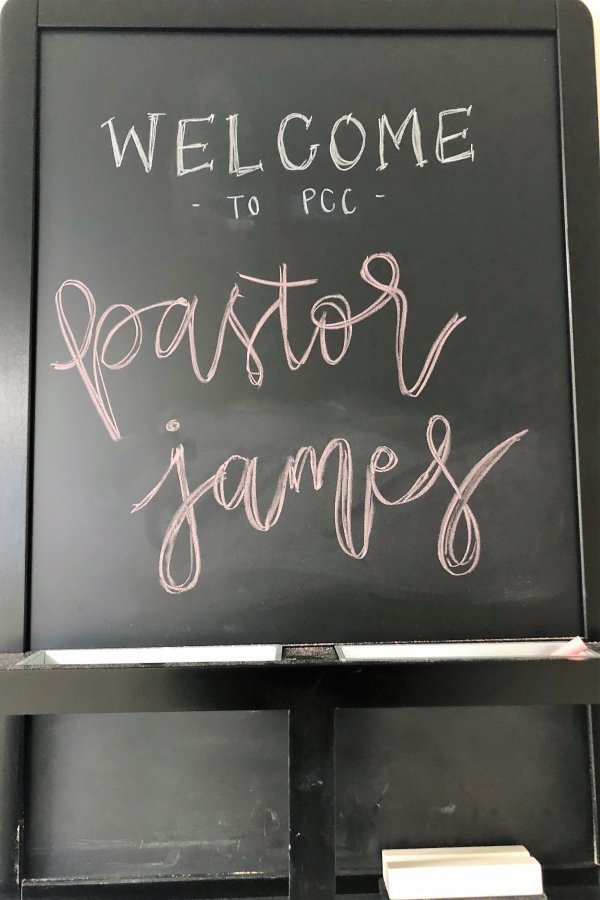 WELCOME
- TO PCC -
pastor
james